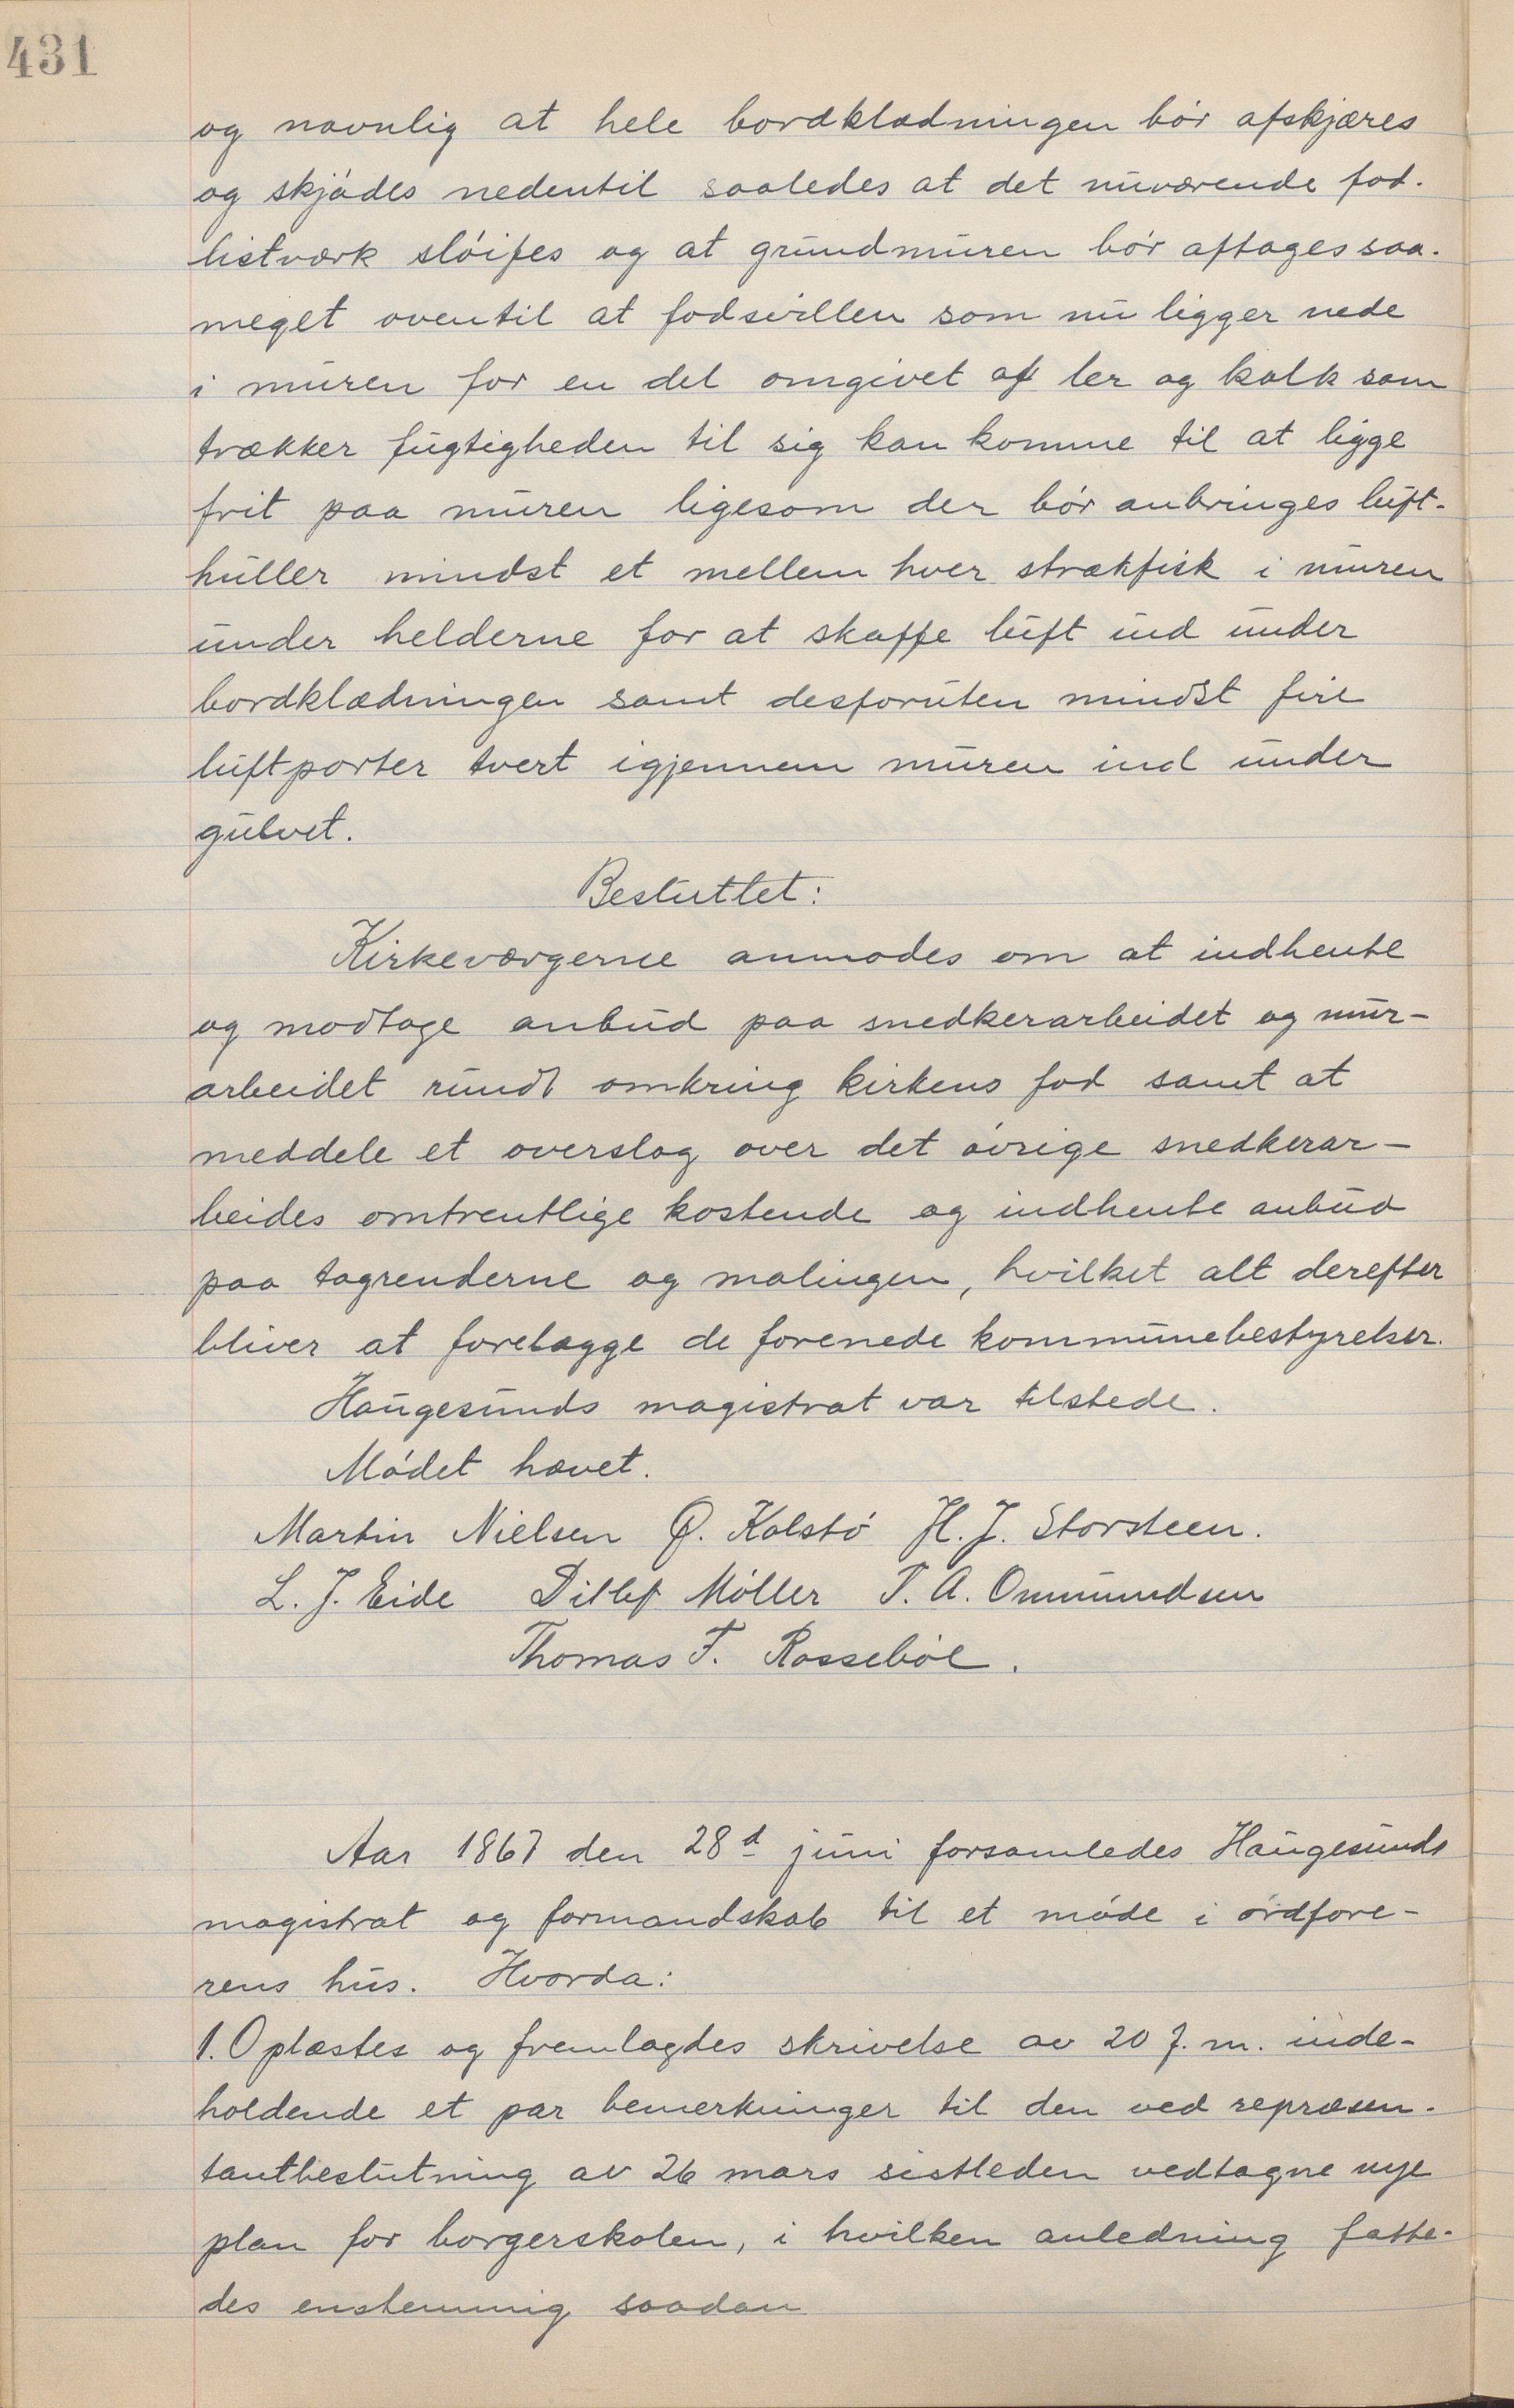 431
og navnlig at hele bordklædningen bör afskjæres
og skjödes nedentil saaledes at det nuværende fod-
listværk slöifes og at grundmuren bör aftages saa-
meget oventil at fodsvillen som nu ligger nede
i muren for en del omgivet af ler og kalk som
trækker fugtigheden til sig kan komme til at ligge
frit paa muren ligesom der bör anbringes luft-
huller mindst et mellem hver strækfisk i muren
under helderne for at skaffe luft ind under
bordklædningen samt desforuten mindst fire
luftporter tvert igjennem muren ind under
gulvet.
Besluttet:
Kirkeværgerne anmodes om at indhente
og modtage anbud paa snedkerarbeidet og mur-
arbeidet rundt omkring kirkens fod samt at
meddele et overslag over det övrige snedkerar-
beides omtrentlige kostende og indhente anbud
paa tagrenderne og malingen, hvilket alt derefter
bliver at forelægge de forenede kommunebestyrelser.
Haugesunds magistrat var tilstede.
Mödet hævet.
Martin Nielsen Ö. Kalstö H. J. Storsteen.
L. J. Eide Ditlef Möller T. A. Ommundsen
Thomas T. Rosseböe.
Aar 1867 den 28d juni forsamledes Haugesunds
magistrat og formandskab til et möde i ordföre-
rens hus. Hvorda:
1. Oplæstes og fremlagdes skrivelse av 20 f. m. inde-
holdende et par bemerkninger til den ved repræsen-
tantbeslutning av 26 mars sistleden vedtagne nye
plan for borgerskolen, i hvilken anledning fatte-
des enstemmig saadan